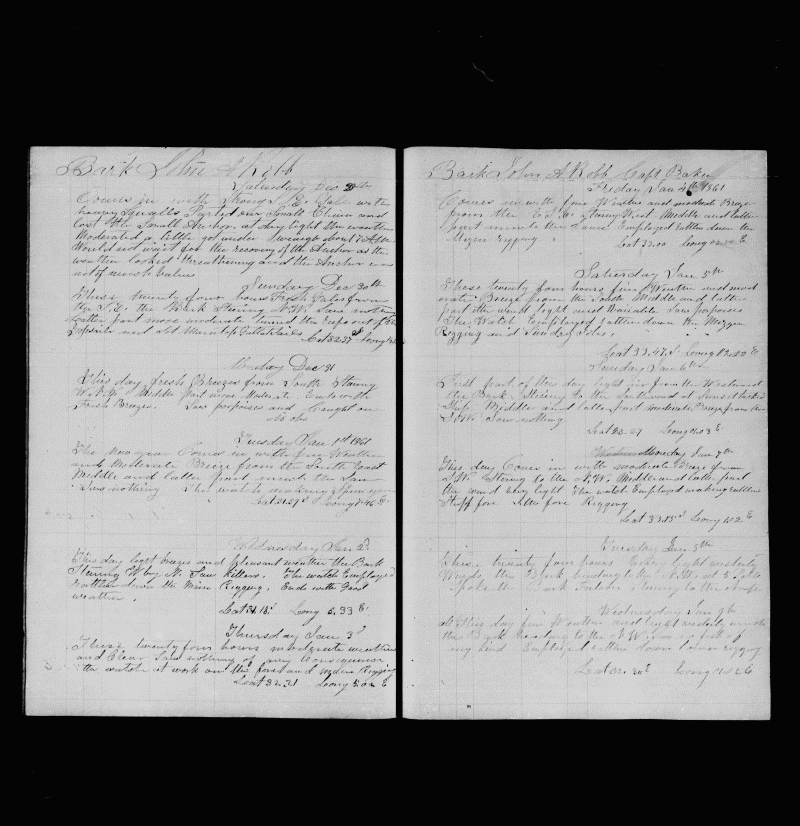 Bark John A Robb
Saturday Dec 29th
Comes in with Strong S.E. Gale with
heavy Squalls Parted our Small Chain and
lost the Small Anchor at day light the weather
Moderated a little got under weigh about 7 AM
Would not wait for the recovery of the Anchor as the
weather looked threatening and the Anchor was
not of much value
Sunday Dec 30th
These twenty four hours Fresh Gales from
the S.E. the Bark Steering N.W. Saw nothing
Latter part more moderate turned the Reefs out of the
Topsails and set Main top Gallantsails
Lat 32.37 S Long
Monday Dec 31
This day fresh Breezes from South Steering
W.N.W. Middle Part more Moderate Ends with
Fresh Breezes. Saw porpoises and Caught one
No obs
Tuesday Jan 1st 1861
The New year Comes in with fine Weather
and Moderate Breeze from the South East
Middle and latter part much the Same
Saw nothing The watch making Spun yarn
Lat 31.59 S Long 7.46 E
Wednesday Jan 2d
This day light breezes and pleasant weather the Bark
Steering W by N. Saw Killers. The watch Employed
Rattling down the Main Rigging. Ends with Good
weather.
Lat 31.18 Long 5.33 E
Thursday Jan 3d
These twenty four hours moderate weather
and Clear Saw nothing of any Consequence
the watch at work on the fore and main Rigging
Lat 32.21 Long 5.02 E
Bark John A Robb Capt Baker
Friday Jan 4th 1861
Comes in with fine Weather and moderate Breeze
from the E.S.E. Steering West Middle and latter
part much the Same Employed Rattling down the
Mizen Rigging
Lat 33.00 Long
Saturday Jan 5th
These twenty four hours fine Weather and mod
erate Breeze from the South Middle and latter
part the wind light and Variable Saw porpoises
The Watch Employed Rattling down the Mizzen
Rigging and Sunday Jobs.
Lat 33.47 S Long
Sunday Jan 6th
First part of this day light airs from the Westward
the Bark Steering to the Southward at Sunset tacked
Ship Middle and latter part moderate Breeze from the
Saw nothing
Lat 33.27 Long 4.03 E
Monday Jan 7th
This day Comes in with moderate Breeze from
S.W. Steering to the N.W. Middle and latter part
the wind very light The watch Employed making rattling
Stuff for the fore Rigging
Lat 33.15 S Long 4.02 E
Tuesday Jan 8th
These twenty four hours light westerly
Winds the Bark heading to the
spoke the Bark steering to the
Wednesday Jan 9th
This day fine Weather and light westerly winds
the Bark heading to the N.W. saw nothing of
any kind Employed rattling down fore rigging
Lat Long